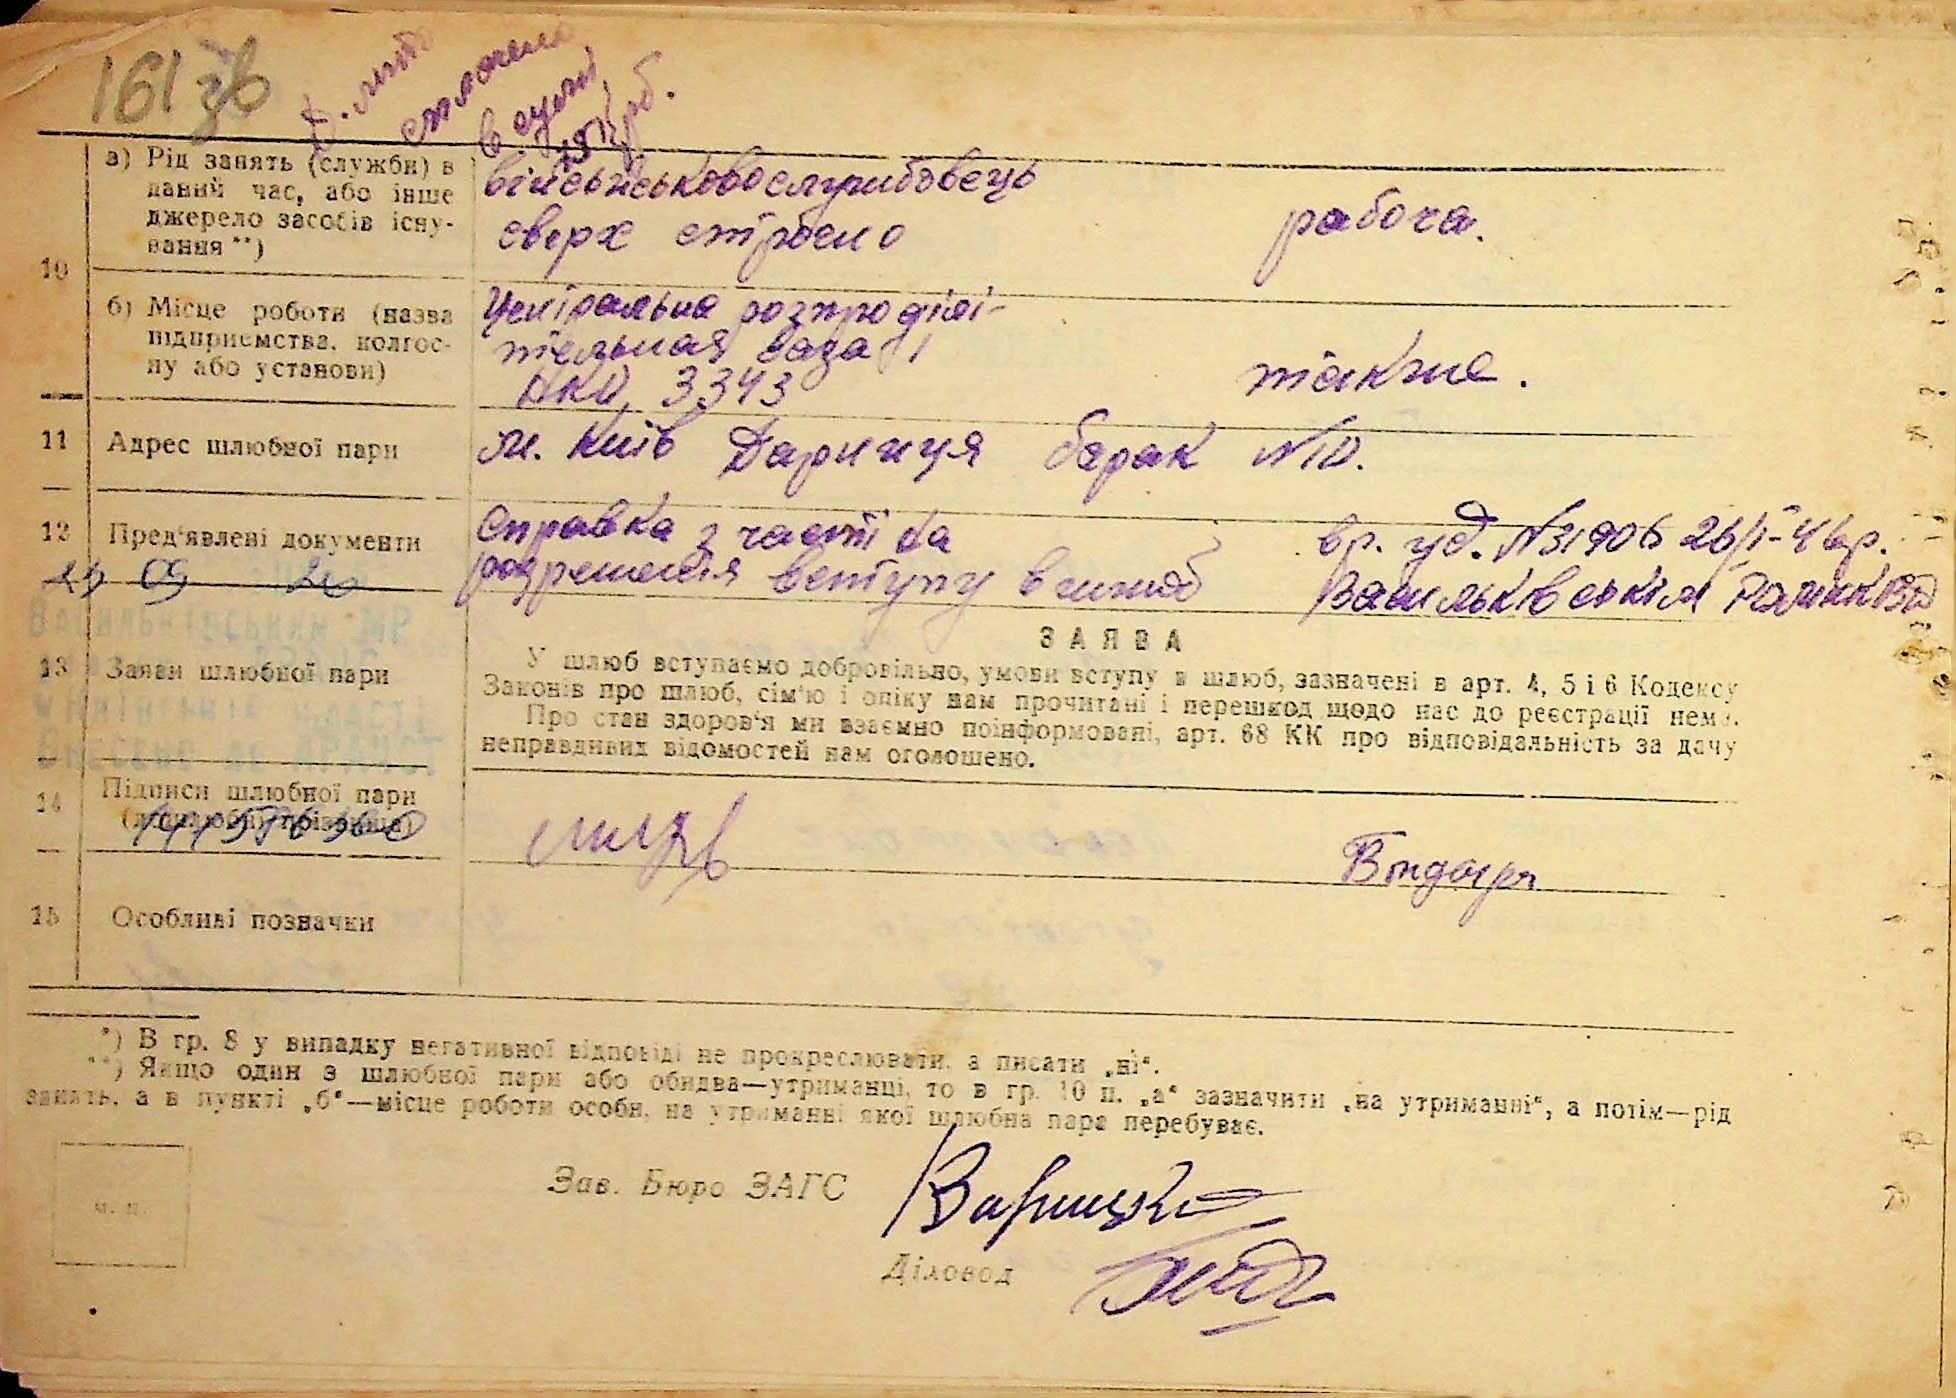 161 зв
в сумі 15 крб.
а) Рід занять (служби) в
даний час, або інше
джерело засобів існу-
вання**)
військовослужбовець
сверх строено
рабоча.
10
б) Місце роботи (назва
підприємства, колгос-
пу або установи)
Центральна розпроділі-
тельная база
3343
также.
11 Адрес шлюбної пари
м. Київ Дарниця барак №10.
12 Пред'явлені документи
Справка з часті на
розрешенія вступу в шлюб
вр. уд. №31906 26/I-46р.
Васильківськім
24 09
13 Заяви шлюбної пари
ЗАЯВА
У шлюб вступаємо добровільно, умови вступу в шлюб, зазначені в арт. 4, 5 і 6 Кодексу
Законів про шлюб, сім'ю і опіку нам прочитані і перешкод щодо нас до реєстрації нема.
Про стан здоров'я ми взаємно поінформовані, арт. 68 КК про відповідальність за дачу
неправдивих відомостей нам оголошено.
14 Підписи шлюбної пари
15 Особливі позначки
*) В гр. 8 у випадку негативної відповіді не прокреслювати, а писати „ні“.
**) Якщо один з шлюбної пари або обидва—утриманці, то в гр. 10 п. „а“ зазначити „на утриманні“, а потім—рід
занять, а в пункті „б“—місце роботи особи, на утриманні якої шлюбна пара перебуває.
м. п.
Зав. Бюро ЗАГС
Діловод